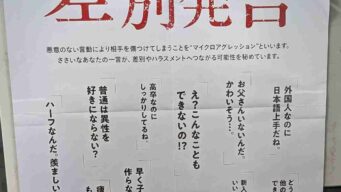 差別発言
悪意のない言動により相手を傷つけてしまうことを“マイクロアグレッション”といいます。
ささいなあなたの一言が、差別やハラスメントへつながる可能性を秘めています。
外国人なのに
日本語上手だね。
お父さんいないんだ。
かわいそう…。
え？こんなことも
できないの!?
高卒なのに
しっかりしてるね。
普通は異性を
好きにならない？
ハーフなんだ。羨ましい
早く子
作らな
新人